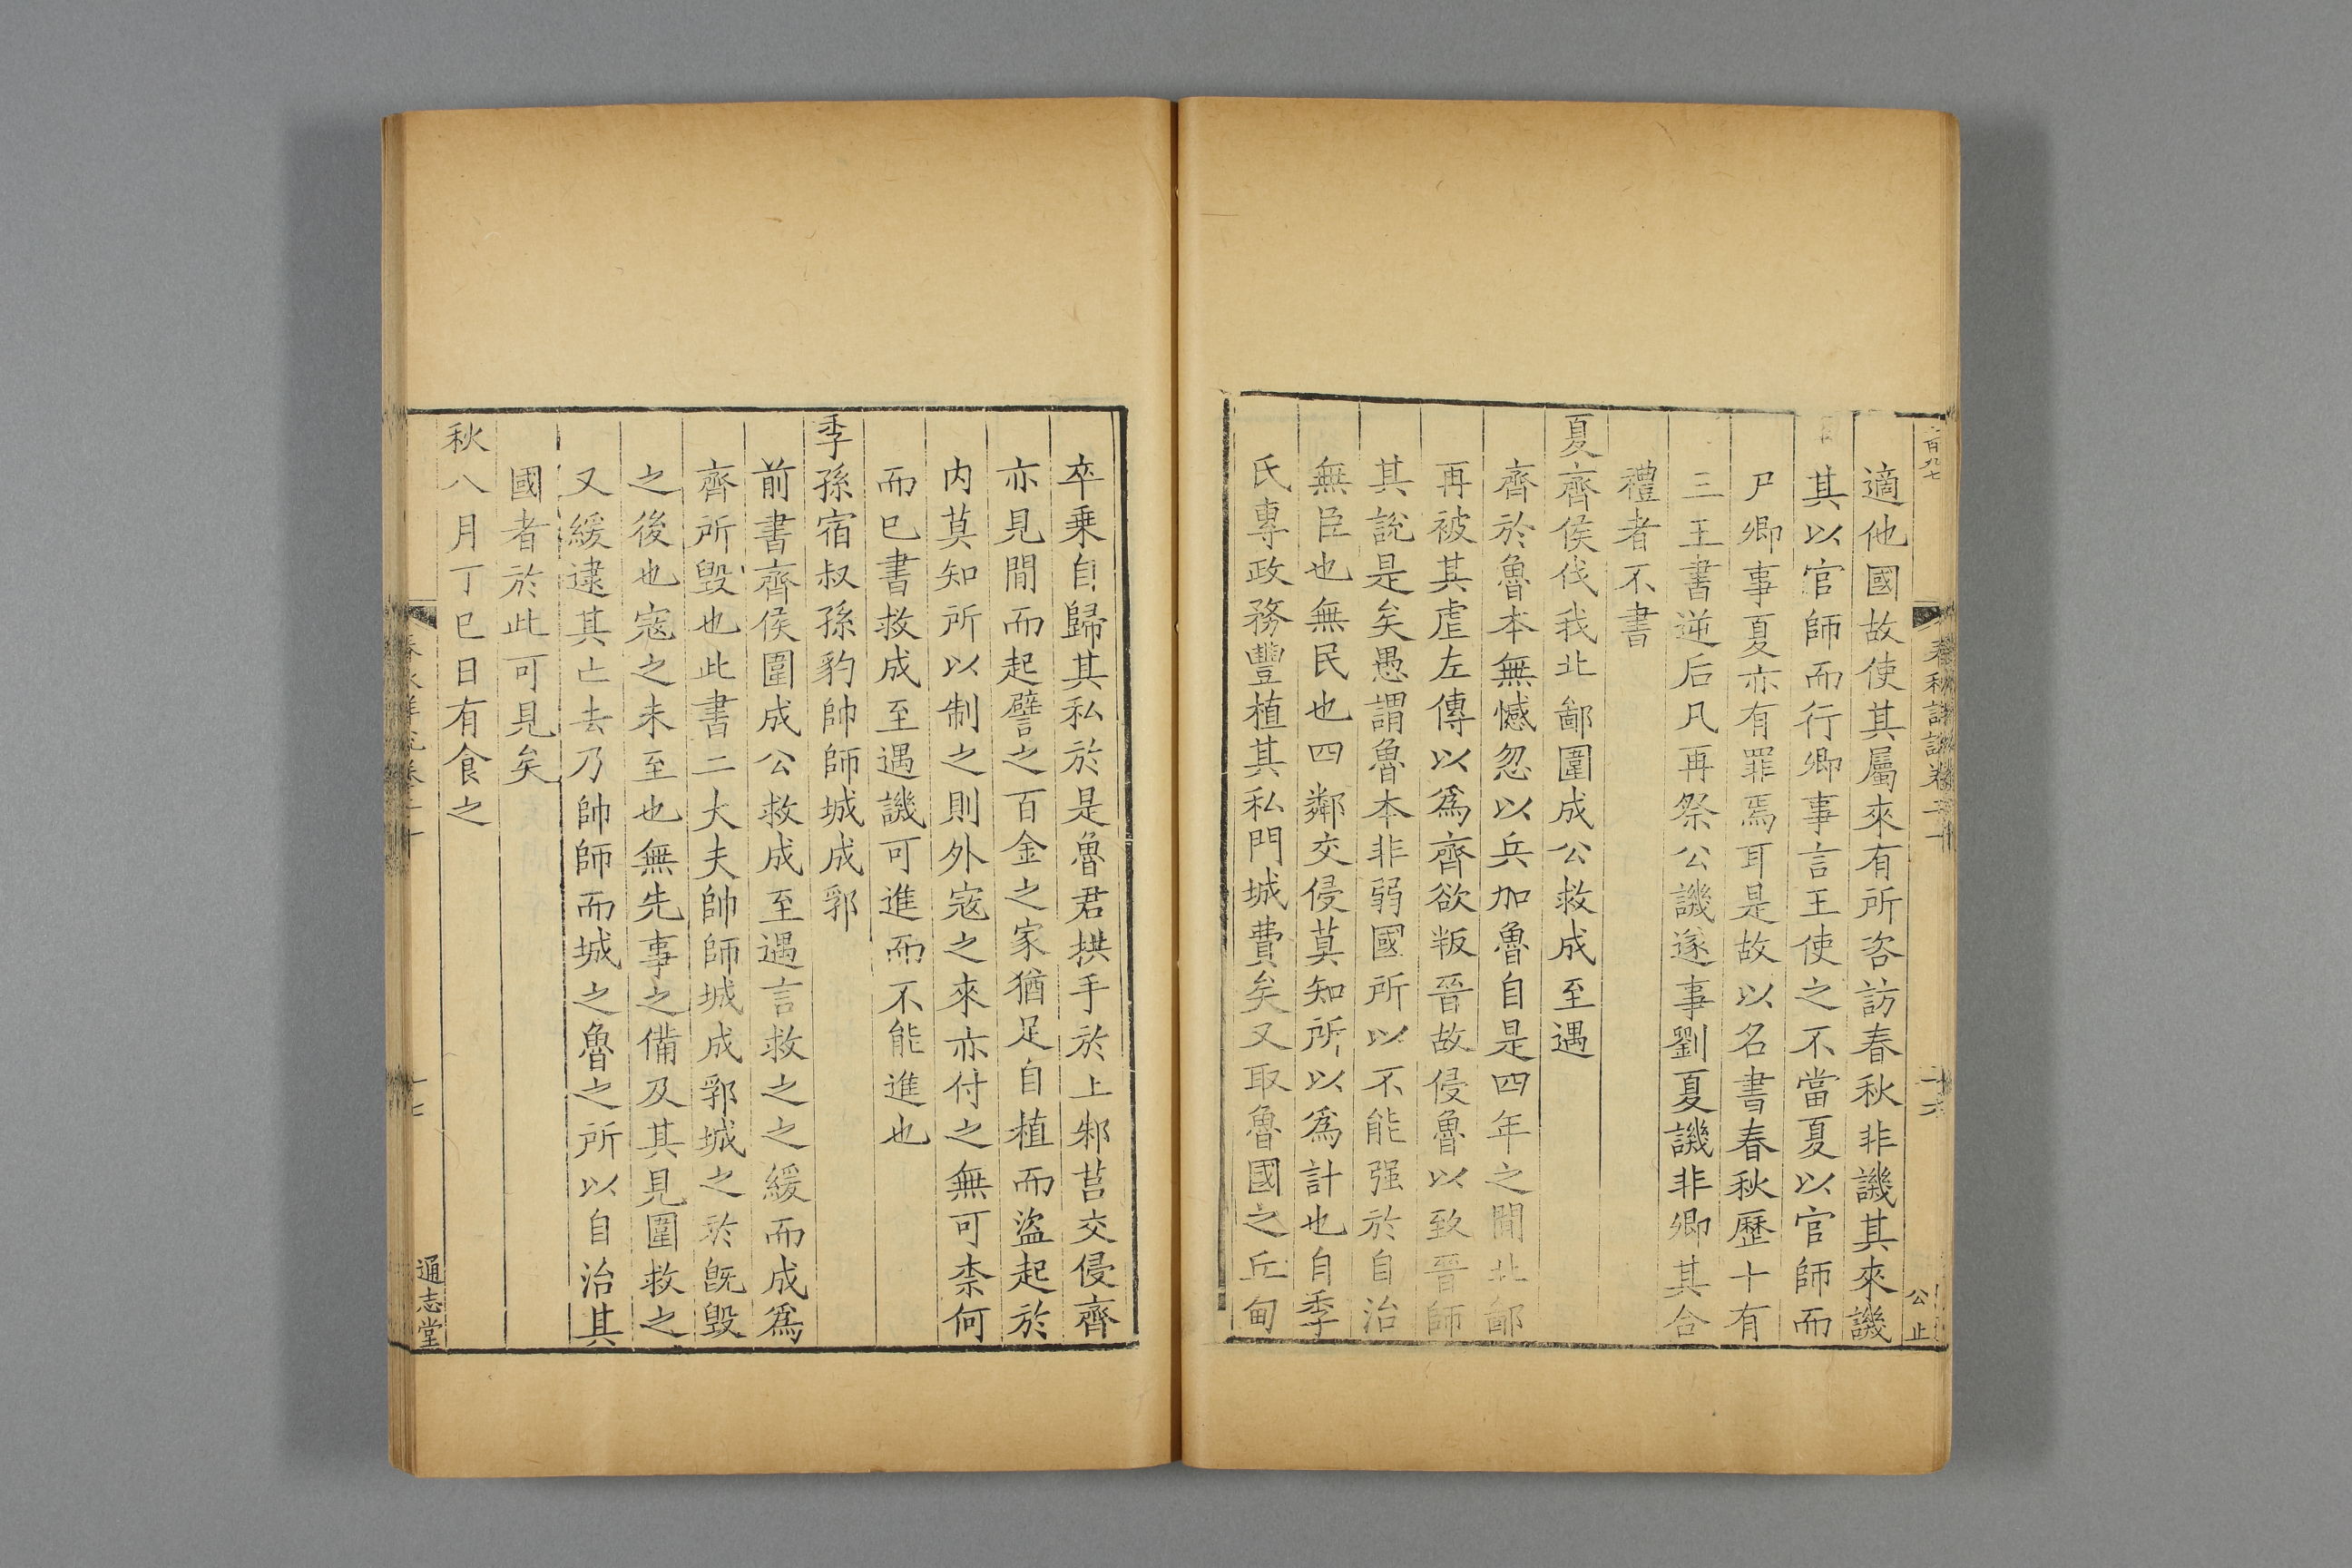 適他國故使其屬來有所咨訪春秋非譏其來譏
其以官師而行卿事言王使之不當夏以官師而
尸卿事夏亦有罪焉耳是故以名書春秋歷十有
三王書逆后凡再祭公譏遂事劉夏譏非卿其合
禮者不書
夏齊侯伐我北鄙圍成公救成至遇
齊於魯本無憾忽以兵加魯自是四年之間北鄙
再被其虐左傳以爲齊欲叛晉故侵魯以致晉師
其說是矣愚謂魯本非弱國所以不能强於自治
無臣也無民也四鄰交侵莫知所以爲計也自季
氏專政務豐植其私門城費矣又取魯國之丘甸
卒乗自歸其私於是魯君拱手於上邾莒交侵齊
亦見間而起譬之百金之家猶足自植而盜起於
内莫知所以制之則外寇之來亦付之無可柰何
而巳書救成至遇譏可進而不能進也
季孫宿叔孫豹帥師城成郛
前書齊侯圍成公救成至遇言救之之緩而成爲
齊所毀也此書二大夫帥師城成郛城之於旣毀
之後也寇之未至也無先事之備及其見圍救之
又緩逮其亡去乃帥師而城之魯之所以自治其
國者於此可見矣
秋八月丁巳日有食之
通志堂